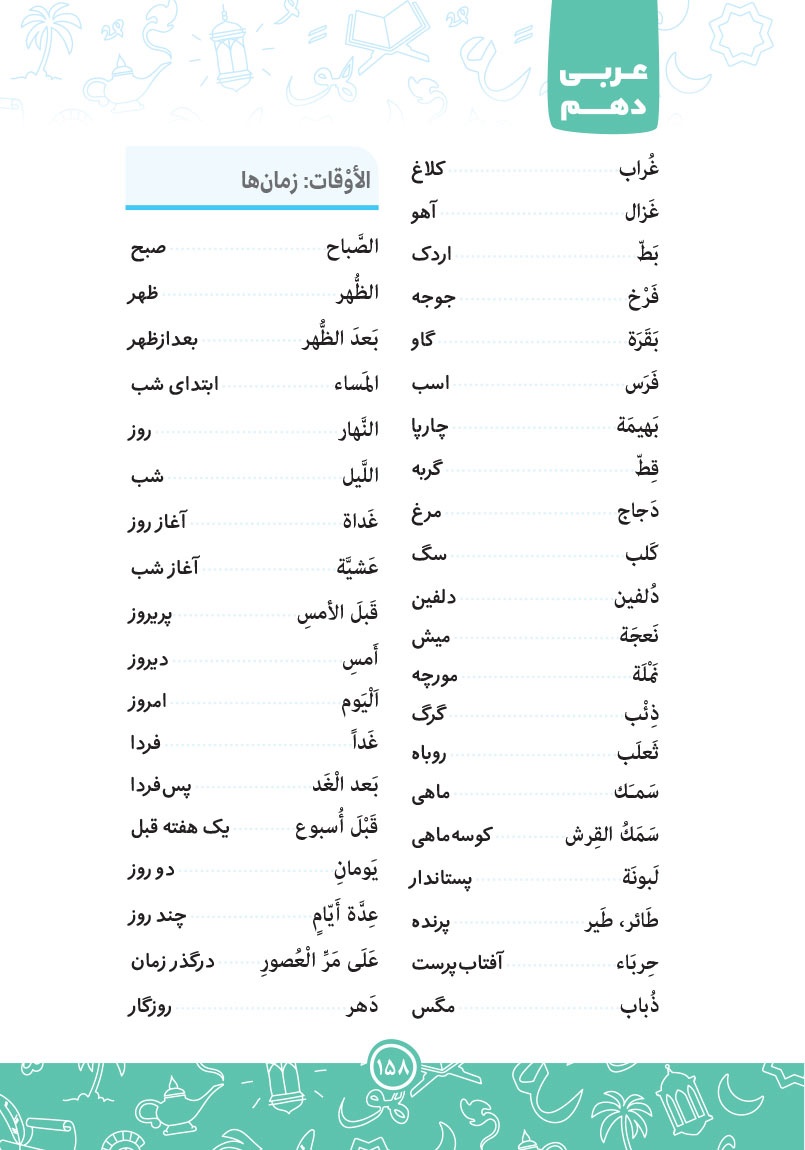 عربی
دهم
غُراب کلاغ
غَزال آهو
بَطّ اردک
فَرْخ جوجه
بَقَرَة گاو
فَرَس اسب
بَهیمَة چارپا
قِطّ گربه
دَجاج مرغ
کَلب سگ
دُلفین دلفین
نَعجَة میش
نَمْلَة مورچه
ذِئْب گرگ
ثَعلَب روباه
سَمَـك ماهی
سَمَكُ القِرش کوسه‌ماهی
لَبونَة پستاندار
طَائر، طَیر پرنده
حِربَاء آفتاب‌پرست
ذُباب مگس
الأوْقات: زمان‌ها
الصَّباح صبح
الظُّهر ظهر
بَعدَ الظُّهر بعدازظهر
المَساء ابتدای شب
النَّهار روز
اللَّیل شب
غَداة آغاز روز
عَشیَّة آغاز شب
قَبلَ الأمسِ پریروز
أَمسِ دیروز
اَلْیَوم امروز
غَداً فردا
بَعد الْغَد پس‌فردا
قَبْلَ أُسبوع یک هفته قبل
یَومانِ دو روز
عِدَّة أَیّامٍ چند روز
عَلَی مَرِّ الْعُصورِ درگذر زمان
دَهر روزگار
۱۵۸